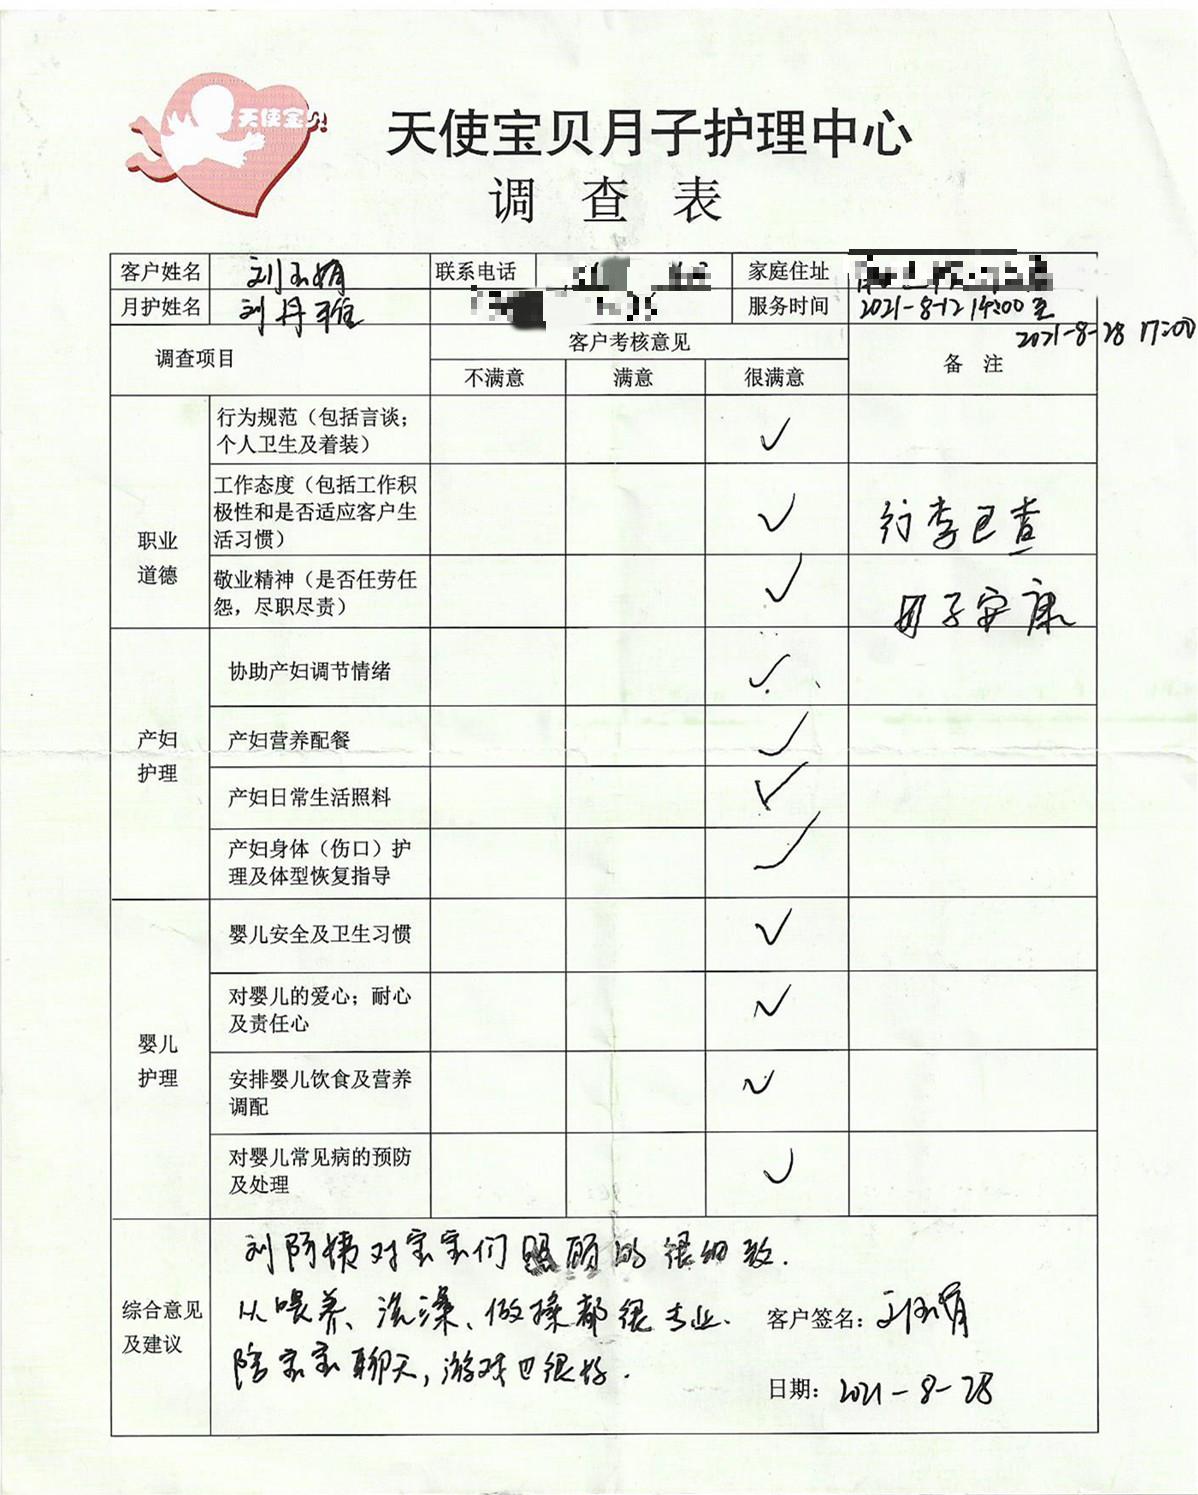 天使宝贝
天使宝贝月子护理中心
调 查 表
客户姓名 刘玉娟 联系电话 家庭住址
月护姓名 刘丹雅 服务时间 2021-8-12 14:00至
2021-8-28 17:00
调查项目 客户考核意见 备 注
不满意 满意 很满意
职业
道德
行为规范（包括言谈；
个人卫生及着装） ✓
工作态度（包括工作积
极性和是否适应客户生
活习惯） ✓ 行李已查
敬业精神（是否任劳任
怨，尽职尽责） ✓ 母子安康
产妇
护理
协助产妇调节情绪 ✓
产妇营养配餐 ✓
产妇日常生活照料 ✓
产妇身体（伤口）护
理及体型恢复指导 ✓
婴儿
护理
婴儿安全及卫生习惯 ✓
对婴儿的爱心；耐心
及责任心 ✓
安排婴儿饮食及营养
调配 ✓
对婴儿常见病的预防
及处理 ✓
综合意见
及建议
刘阿姨对宝宝们照顾的很细致.
从喂养、洗澡、做操都很专业.
陪宝宝聊天，游戏也很好.
客户签名：刘玉娟
日期：2021-8-28